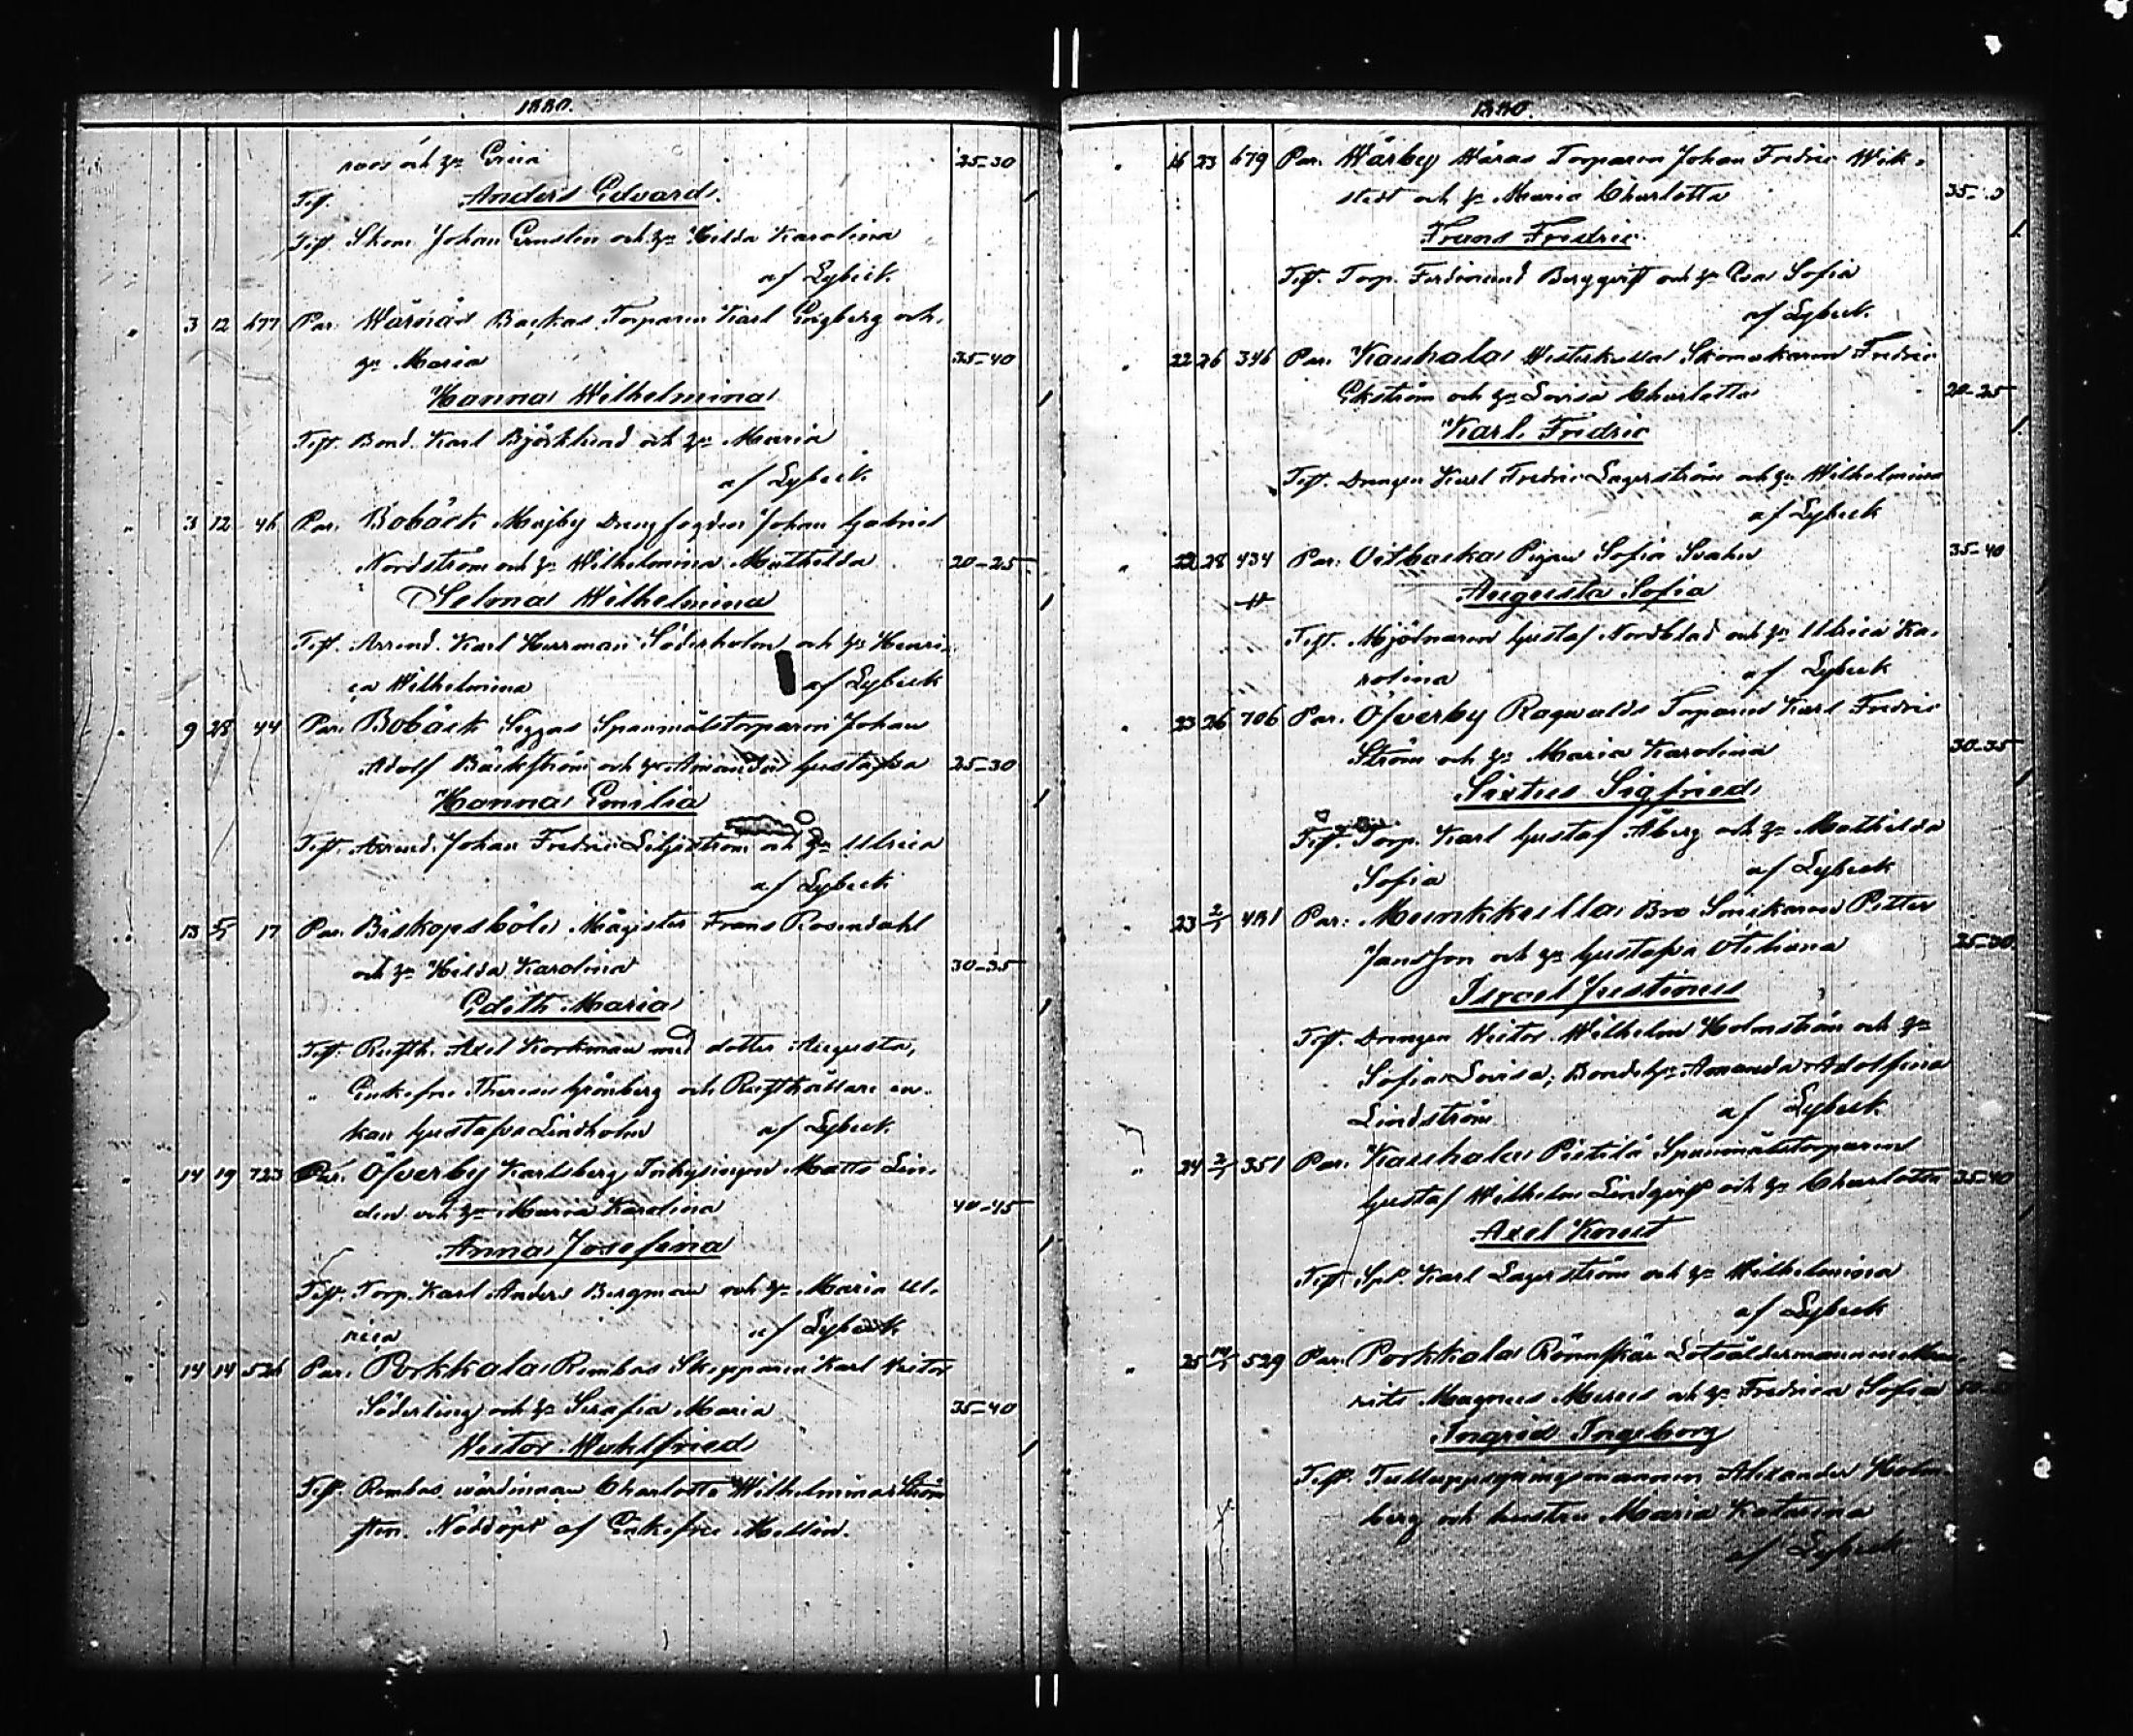 1880.
och hu 25-30
Test. Anders Edvard.
Test. Skom. Johan och hu Hilda Karolina
af Lybeck.
" 3 12 677 Par. Wårnäs Backas Torparen Karl Engberg och
hu Maria 35-40
Hanna Wilhelmina
Test. Bond. Karl Björklund och hu Maria
af Lybeck.
" 3 12 46 Par. Bobäck Majby Drengfogden Johan Gabriel
Nordström och hu Wilhelmina Mathilda 20-25
Selma Wilhelmina
Test. Arrend. Karl Herrman Söderholm och hu Henri-
ca Wilhelmina af Lybeck
" 9 28 44 Par. Bobäck Siggas Spanmålstorparen Johan
Adolf Bäckström och hu Amanda Gustafva 25-30
Hanna Emilia
Test. Arrend. Johan Fredric Liljeström och hu Ulrica
af Lybeck
" 13 5/5 17 Par. Biskopsböle Magister Frans Rosendahl
och hu Hilda Karolina 30-35
Edith Maria
Test. Rusth. Axel Korkman med dotter Augusta,
" Enkefru Therese Grönberg och Rusthållare en-
kan Gustafva Lindholm af Lybeck.
" 14 19 723 Par. Öfverby Karlsberg Inhysingen Matts Lin-
den och hu Maria Karolina 40-45
Anna Josefina
Test. Torp. Karl Anders Bergman och hu Maria Ul-
rica af Lybeck
14 14 526 Par. Porkkala Rembas Skepparen Karl Victor
Söderling och hu Serafia Maria 35-40
Victor Wahlfried
Test. Rembas värdinnan Charlotta Wilhelmina Ström
sten. Nöddöpt af Enkefru Mellin.
1880.
" 16 23 679 Par. Wårby Wäras Torparen Johan Fredric Wik-
stedt och hu Maria Charlotta
Frans Fredric
Test. Torp. Ferdinand Bergqvist och hu Eva Sofia
af Lybeck.
" 22 26 346 Par. Kauhala Westerkulla Skomakaren Fredric
Ekström och hu Lovisa Charlotta 20-25
Karl Fredric
Test. Drengen Karl Fredric Lagerström och hu Wilhelmina
af Lybeck
" 22 28 434 Par. Oitbacka Pigan Sofia Svahn 35-40
Augusta Sofia
Test. Mjölnaren Gustaf Nordblad och hu Ulrica Ka-
rolina af Lybeck
" 23 26 706 Par. Öfverby Ragwalds Torparen Karl Fredric
Ström och hu Maria Karolina 30-35
Sixtus Sigfried
Test. Torp. Karl Gustaf Åberg och hu Mathilda
Sofia af Lybeck
23 2/5 481 Par. Munkkulla Bro Snickaren Petter
Jansson och hu Gustafva Otiliana
Israel Justinus
Test. Drengen Victor Wilhelm Holmström och hu
Sofia Lovisa; Bonde hu Amanda Adolfina
Lindström af Lybeck
" 24 2/5 351 Par. Kauhala Pietilä Spanmålstorparen
Gustaf Wilhelm Lindqvist och hu Charlotta 35-40
Axel Knut
Test. Karl Lagerström och hu Wilhelmina
af Lybeck
" 25 529 Par. Porkkala Rönnskär Lotsåldermannen Mau-
ritz Magnus Murus och hu Fredrica Sofia
Ingrid Ingeborg
Test. Tulluppsyningsmannen Alexander Holm-
berg och hustru Maria Katarina
af Lybeck